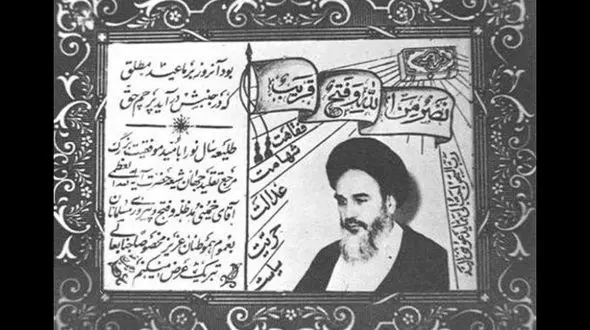 بود آنروز بر ما عید مطلق
که در جنبش در آید پرچم حق
طلیعه سال نو را با امید موفقیت بزرگ
مرجع تقلید جهان شیعه حضرت آیت العظمی
آقای خمینی مد ظله و فتح و پیروزی مسلمانان
بعموم هموطنان عزیز مخصوصا جنابعالی
تبریک عرض میکنم
نصر من الله و فتح قریب
فقاهت
شهامت
عدالت
حریت
سیاست